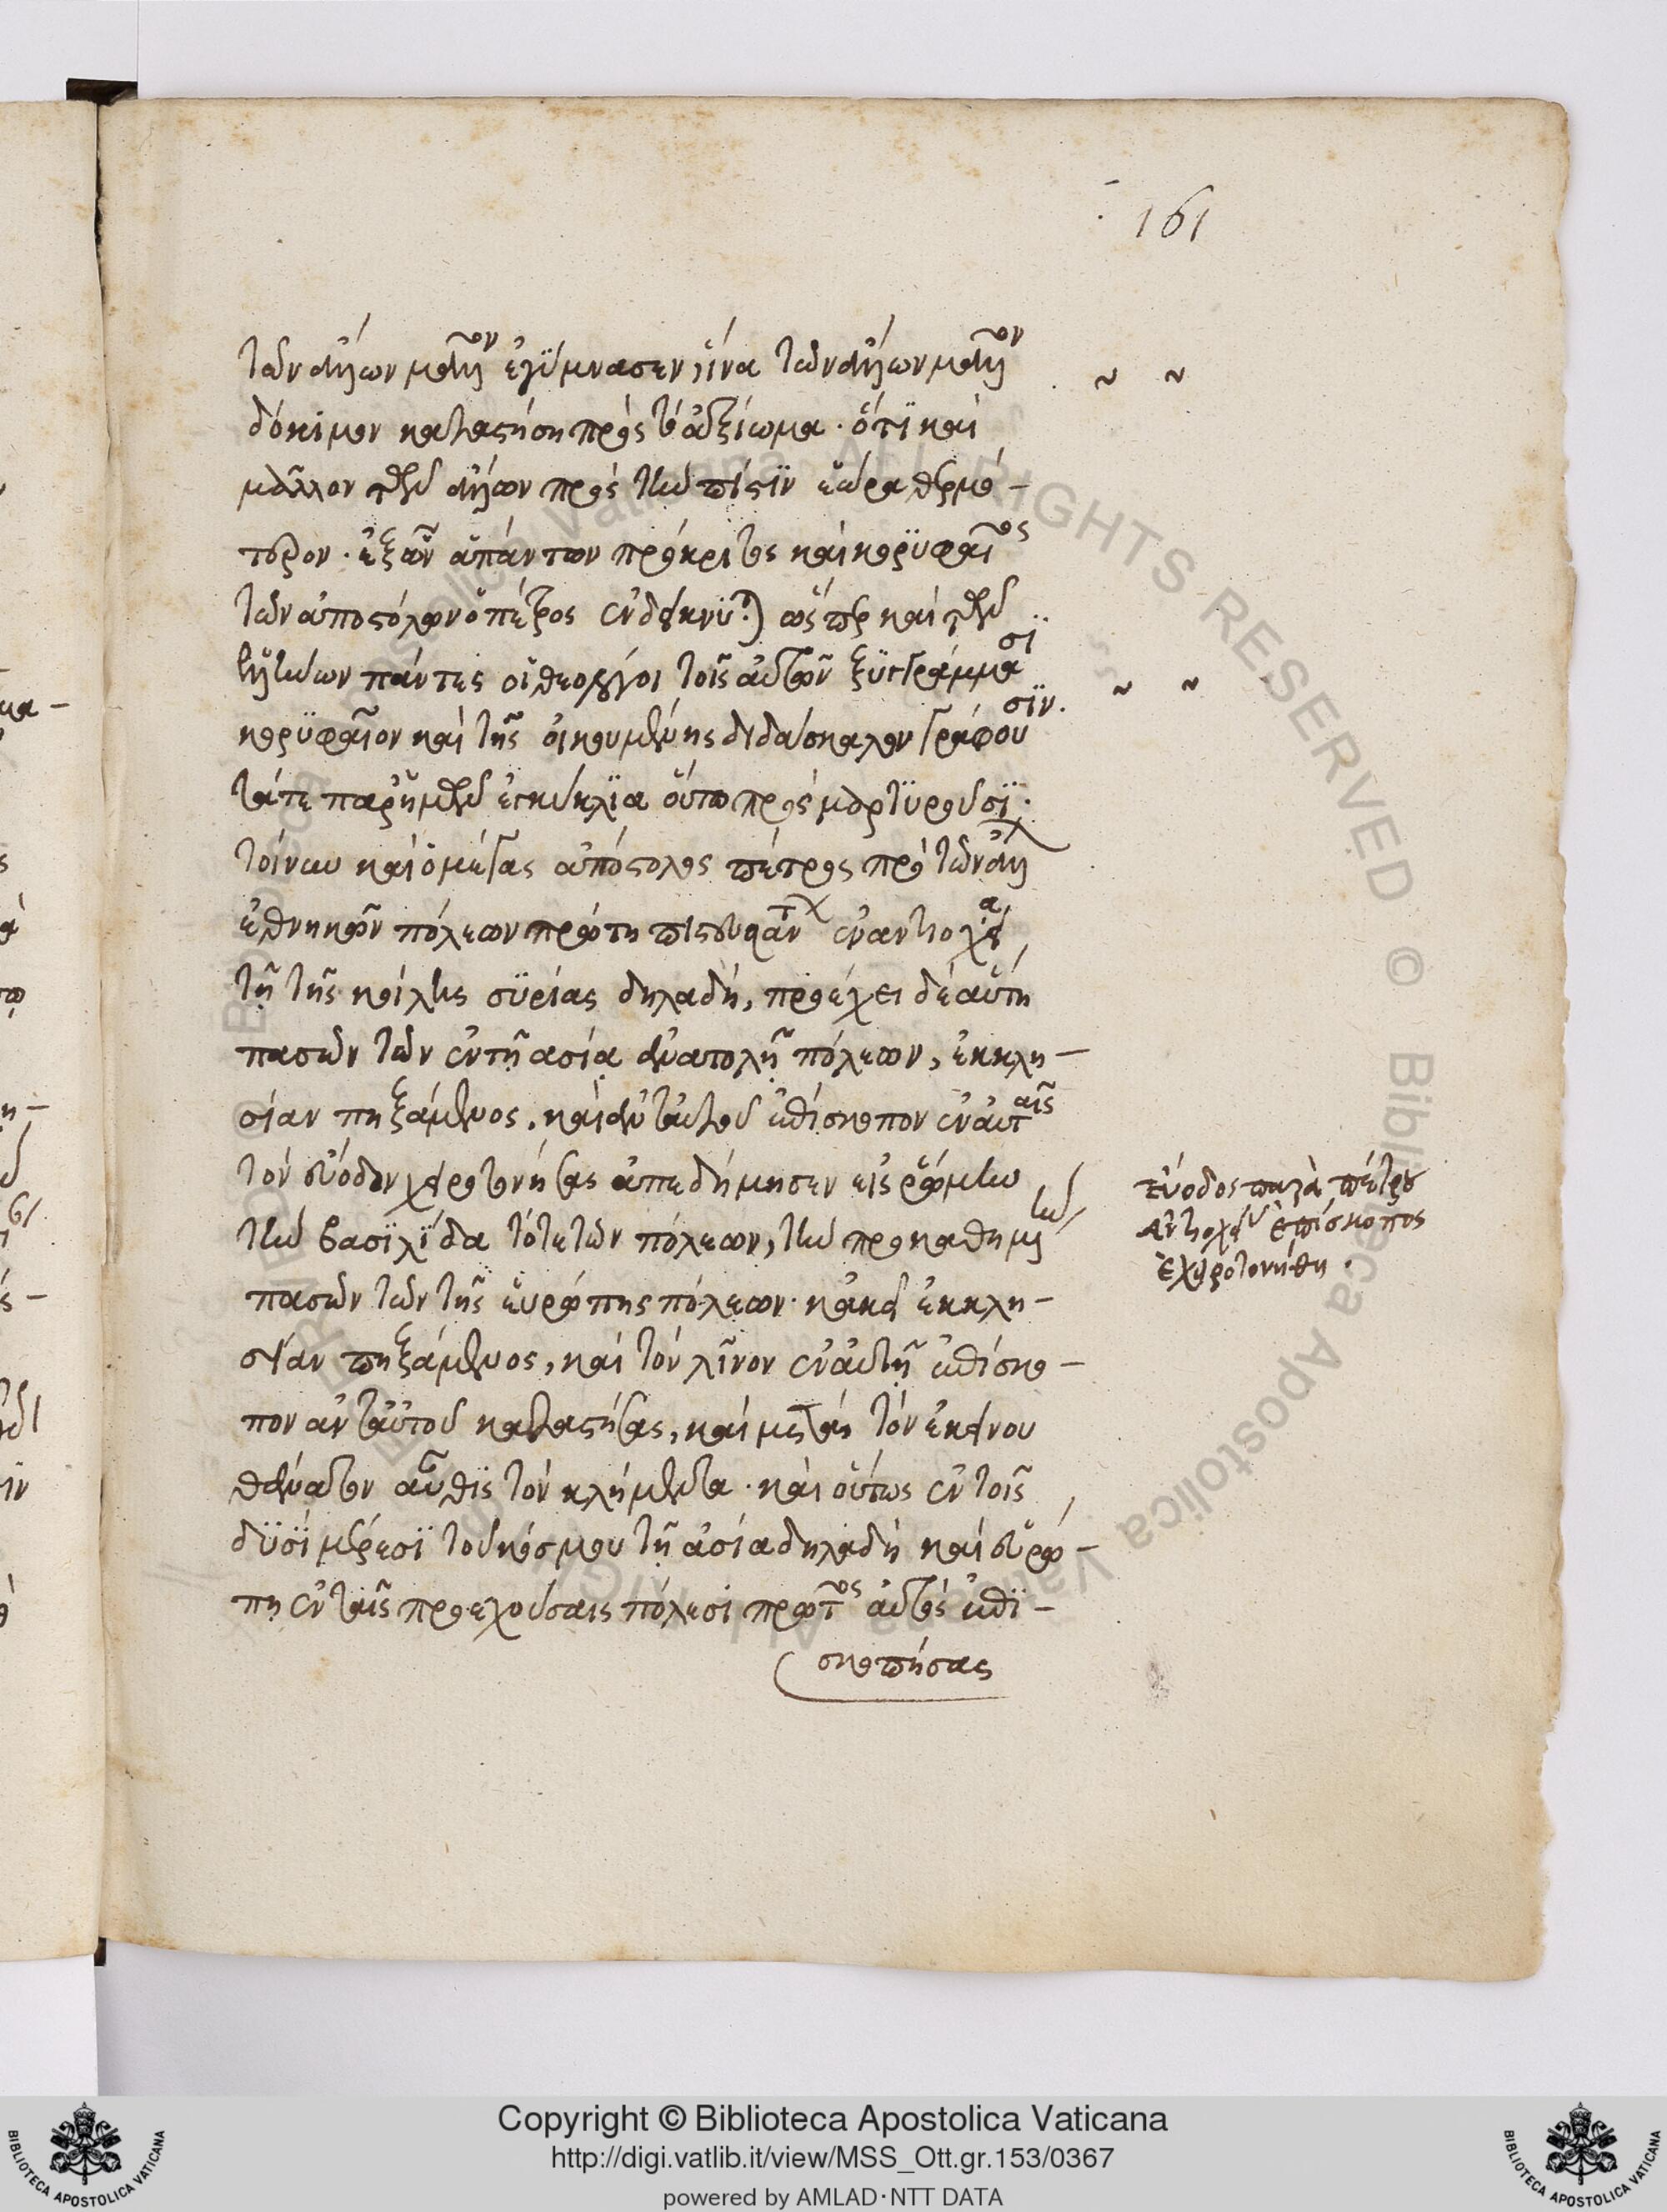 161
τῶν ἄλλων μᾶλλον ἐγύμνασεν, ἵνα τῶν ἄλλων μᾶλλον
δόκιμον καταστήση πρὸς τὸ ἀξίωμα · ὅτι καὶ
μᾶλλον τῶν ἄλλων πρὸς τὴν πίστιν ἑώρα θερμό-
τερον · ἐξ ὧν ἁπάντων πρόκριτος καὶ κορυφαῖος
τῶν ἀποστόλων ὁ πέτρος ἐνδείκνυται ὥσπερ καὶ τῶν
πάντες οἱ θεολόγοι τοῖς αὐτῶν ξυγγράμμασι
κορυφαῖον καὶ τῆς οἰκουμένης διδάσκαλον γράφουσιν.
τά τε παρ' ἡμῶν ἐγκύκλια οὕτω προσμαρτυροῦσι·
τοίνυν καὶ ὁ μέγας ἀπόστολος πέτρος πρὸ τῶν ἄλλων
ἐθνικῶν πόλεων πρώτη ἐν ἀντιοχεία
τῆ τῆς κοίλης συρίας δηλαδή, προέχει δὲ αὕτη
πασῶν τῶν ἐν τῆ ἀσία ἀνατολῆ πόλεων, ἐκκλη-
σίαν πηξάμενος, καὶ ἀντ' αὐτοῦ ἐπίσκοπον ἐν αὐταῖς
τὸν εὔοδον χειροτονήσας ἀπεδήμησεν εἰς ῥώμην
τὴν βασιλίδα τότε τῶν πόλεων, τὴν προκαθημένην
πασῶν τῶν τῆς εὐρώπης πόλεων · κἀκεῖ ἐκκλη-
σίαν πηξάμενος, καὶ τὸν λῖνον ἐν αὐτῆ ἐπίσκο-
πον ἀντ' αὐτοῦ καταστήσας, καὶ μετὰ τὸν ἐκείνου
θάνατον αὖθις τὸν κλήμεντα · καὶ οὕτως ἐν τοῖς
δυσὶ μέρεσι τοῦ κόσμου τῆ ἀσία δηλαδὴ καὶ εὐρώ-
πη ἐν ταῖς προεχούσαις πόλεσι πρῶτος αὐτὸς ἐπι-
σκοπήσας
εὔοδος παρὰ πέτρου
ἀντιοχείας ἐπίσκοπος
ἐχειροτονήθη .
Copyright © Biblioteca Apostolica Vaticana
http://digi.vatlib.it/view/MSS_Ott.gr.153/0367
powered by AMLAD·NTT DATA
BIBLIOTECA APOSTOLICA VATICANA
BIBLIOTECA APOSTOLICA VATICANA